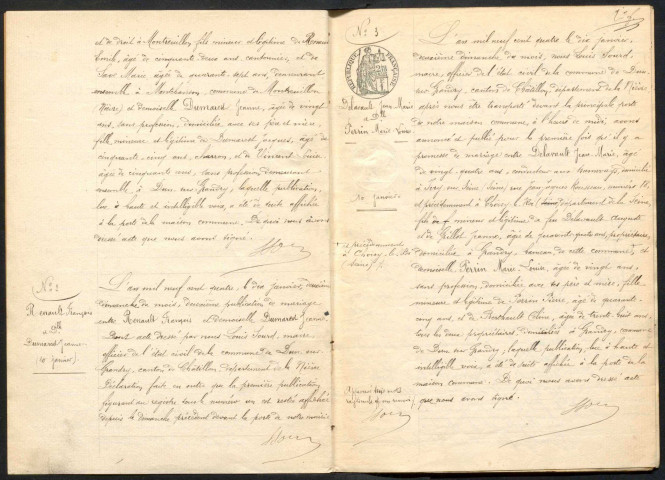 et de droit à Montreuillon, fils mineur et légitime de Renault
âgé de cinquante deux ans, cantonnier, et de
Marie, âgée de quarante sept ans, demeurant
ensemble à commune de Montreuillon
(Nièvre) et demoiselle Dumarest Jeanne, âgée de vingt
ans, sans profession, domiciliée avec ses père et mère,
fille mineure et légitime de Dumarest âgé de
cinquante cinq ans, et de
âgée de cinquante ans, sans profession, demeurant
ensemble, à Dun sur Grandry, laquelle publication,
lue à haute et intelligible voix, a été de suite affichée
à la porte de la maison commune. De quoi nous avons
dressé acte que nous avons signé.
N°: 2
Renault François
et Dlle
Dumarest Jeanne
10 Janvier
L'an mil neuf cent quatre le dix janvier, deuxième
dimanche du mois, deuxième publication de mariage
entre Renault François et demoiselle Dumarest Jeanne
Dont acte dressé par nous Louis Sourd, maire
officier de l'état civil de la commune de Dun sur
Grandry, canton de Châtillon, département de la Nièvre
Déclaration faite en outre que la première publication,
figurant au registre sous le numéro un est restée affichée
depuis le dimanche précédent devant la porte de notre mairie
N°: 3
RÉPUBLIQUE FRANÇAISE
Delavault Jean Marie
et Dlle
Perrin Marie Louise
10 Janvier
L'an mil neuf cent quatre le dix janvier,
deuxième dimanche du mois, nous Louis Sourd,
maire, officier de l'état civil de la commune de Dun
sur Grandry, canton de Châtillon, département de la Nièvre
après nous être transporté devant la principale porte
de notre maison commune, à l'heure de midi, avons
annoncé et publié pour la première fois qu'il y a
promesse de mariage entre Delavault Jean Marie, âgé
de vingt quatre ans, domicilié
à Ivry sur Seine (Seine), rue Jean Jacques Rousseau, numéro
et précédemment à département de la Seine,
fils mineur et légitime de Delavault Auguste
et de Grillot Jeanne, âgés de quarante quatre ans, propriétaires,
domiciliés à Grandry, hameau de cette commune, et
demoiselle Perrin Marie Louise, âgée de vingt ans,
sans profession, domiciliée avec ses père et mère, fille
mineure et légitime de Perrin Pierre, âgé de quarante
cinq ans, et de Berthault Céline, âgée de trente huit ans,
tous les deux propriétaires, domiciliés à Grandry, commune
de Dun sur Grandry, laquelle publication, lue à haute et
intelligible voix, a été de suite affichée à la porte de la
maison commune. De quoi nous avons dressé acte
que nous avons signé.